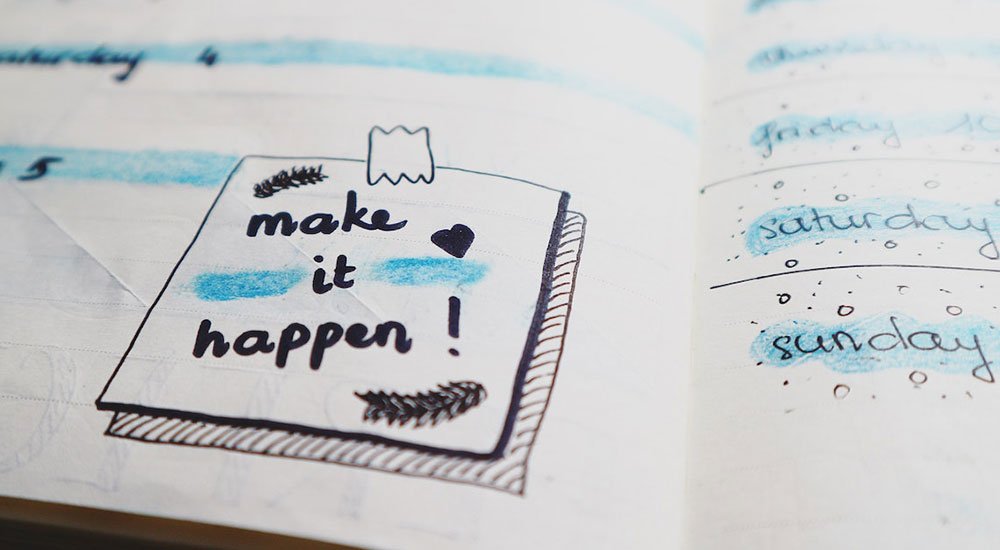 saturday 4
5
make
it
happen!
thursday
friday
saturday
sunday